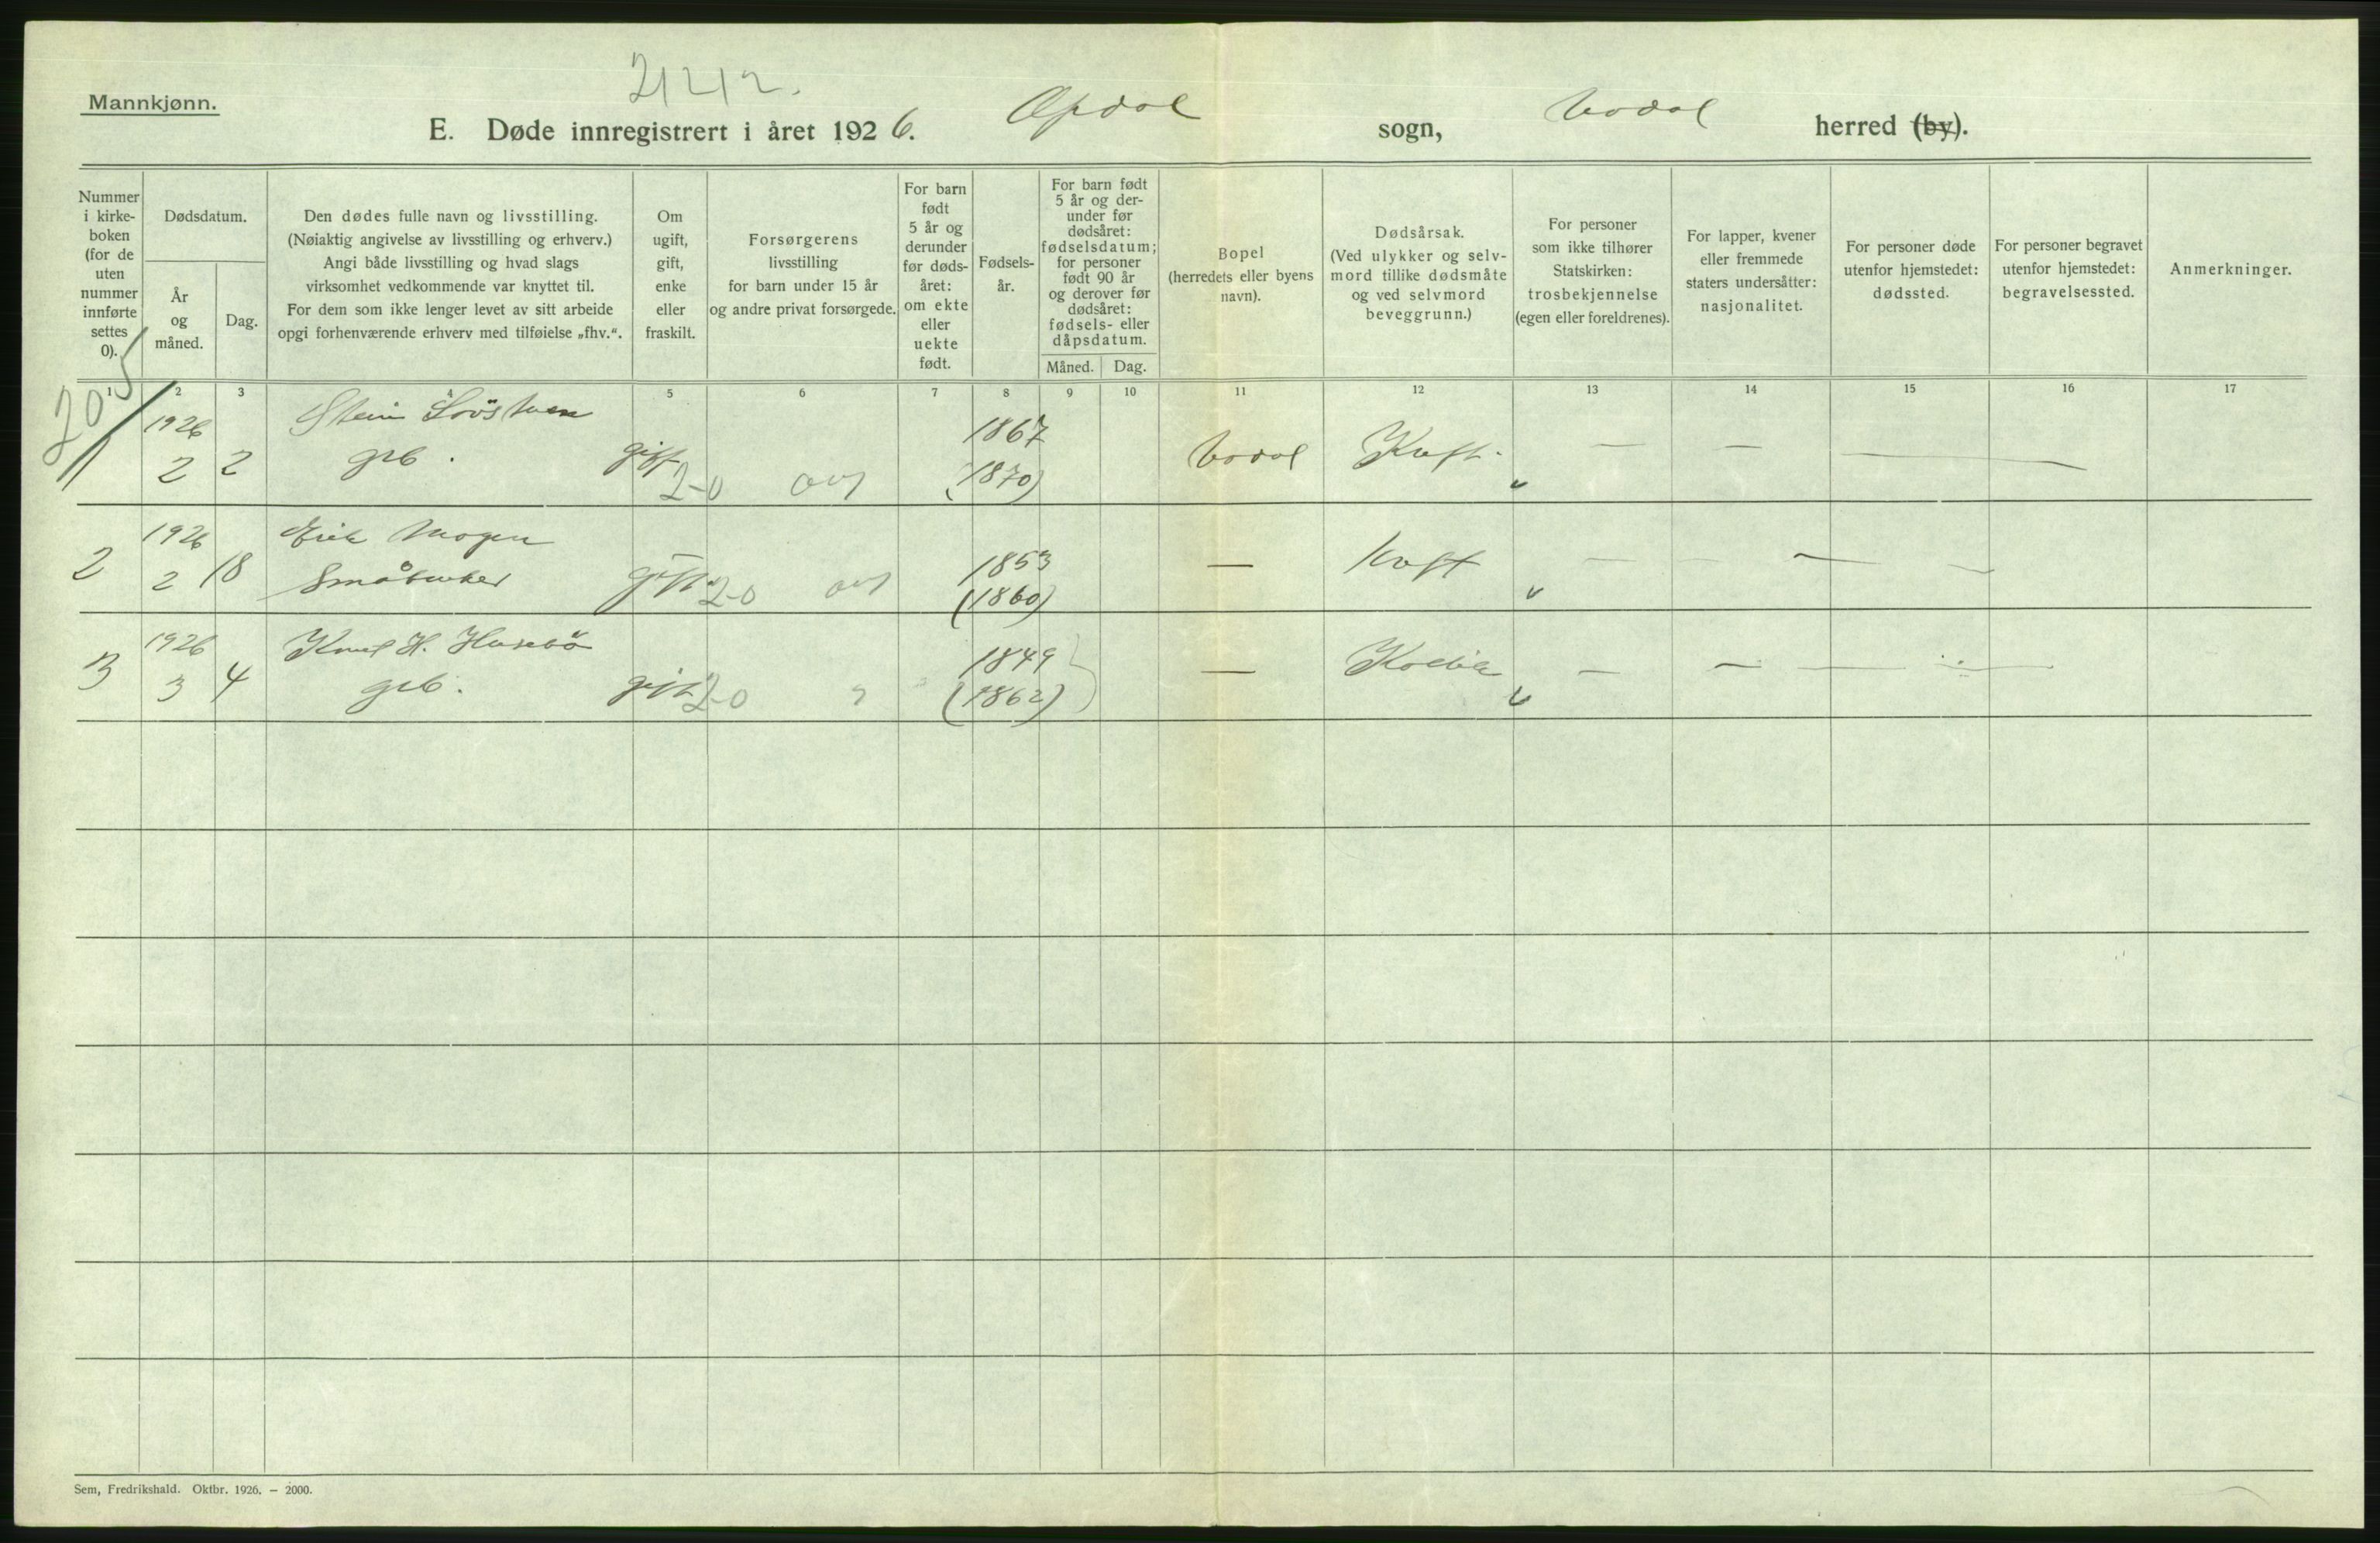 2/212.
Mannkjønn.
E. Døde innregistrert i året 1926. Opdal sogn, Uvdal herred (by).
Nummer i kirke-boken (for de uten nummer innførte settes 0).
Dødsdatum.
År og måned.
Dag.
Den dødes fulle navn og livsstilling.
(Nøiaktig angivelse av livsstilling og erhverv.)
Angi både livsstilling og hvad slags
virksomhet vedkommende var knyttet til.
For dem som ikke lenger levet av sitt arbeide
opgi forhenværende erhverv med tilføielse „fhv.“.
Om ugift, gift, enke eller fraskilt.
Forsørgerens
livsstilling
for barn under 15 år
og andre privat forsørgede.
For barn født 5 år og derunder før døds-året: om ekte eller uekte født.
Fødsels-år.
For barn født 5 år og der-under før dødsåret: fødselsdatum; for personer født 90 år og derover før dødsåret: fødsels- eller dåpsdatum.
Måned. Dag.
Bopel
(herredets eller byens
navn).
Dødsårsak.
(Ved ulykker og selv-
mord tillike dødsmåte
og ved selvmord
beveggrunn.)
For personer
som ikke tilhører
Statskirken:
trosbekjennelse
(egen eller foreldrenes).
For lapper, kvener
eller fremmede
staters undersåtter:
nasjonalitet.
For personer døde
utenfor hjemstedet:
dødssted.
For personer begravet
utenfor hjemstedet:
begravelsessted.
Anmerkninger.
1 2 3 4 5 6 7 8 9 10 11 12 13 14 15 16 17
205
1 1926 Stein 1867
2 2 grb. gift 2-0 (1870) Uvdal Kreft. — — —
2 1926 Erik Mogen 1853
2 18 Småbruker gift 2-0 (1860) — Kreft — — —
3 1926 Knut H. Husebö 1849
3 4 grb. gift 2-0 " (1862) — — — —
Sem, Fredrikshald. Oktbr. 1926. – 2000.